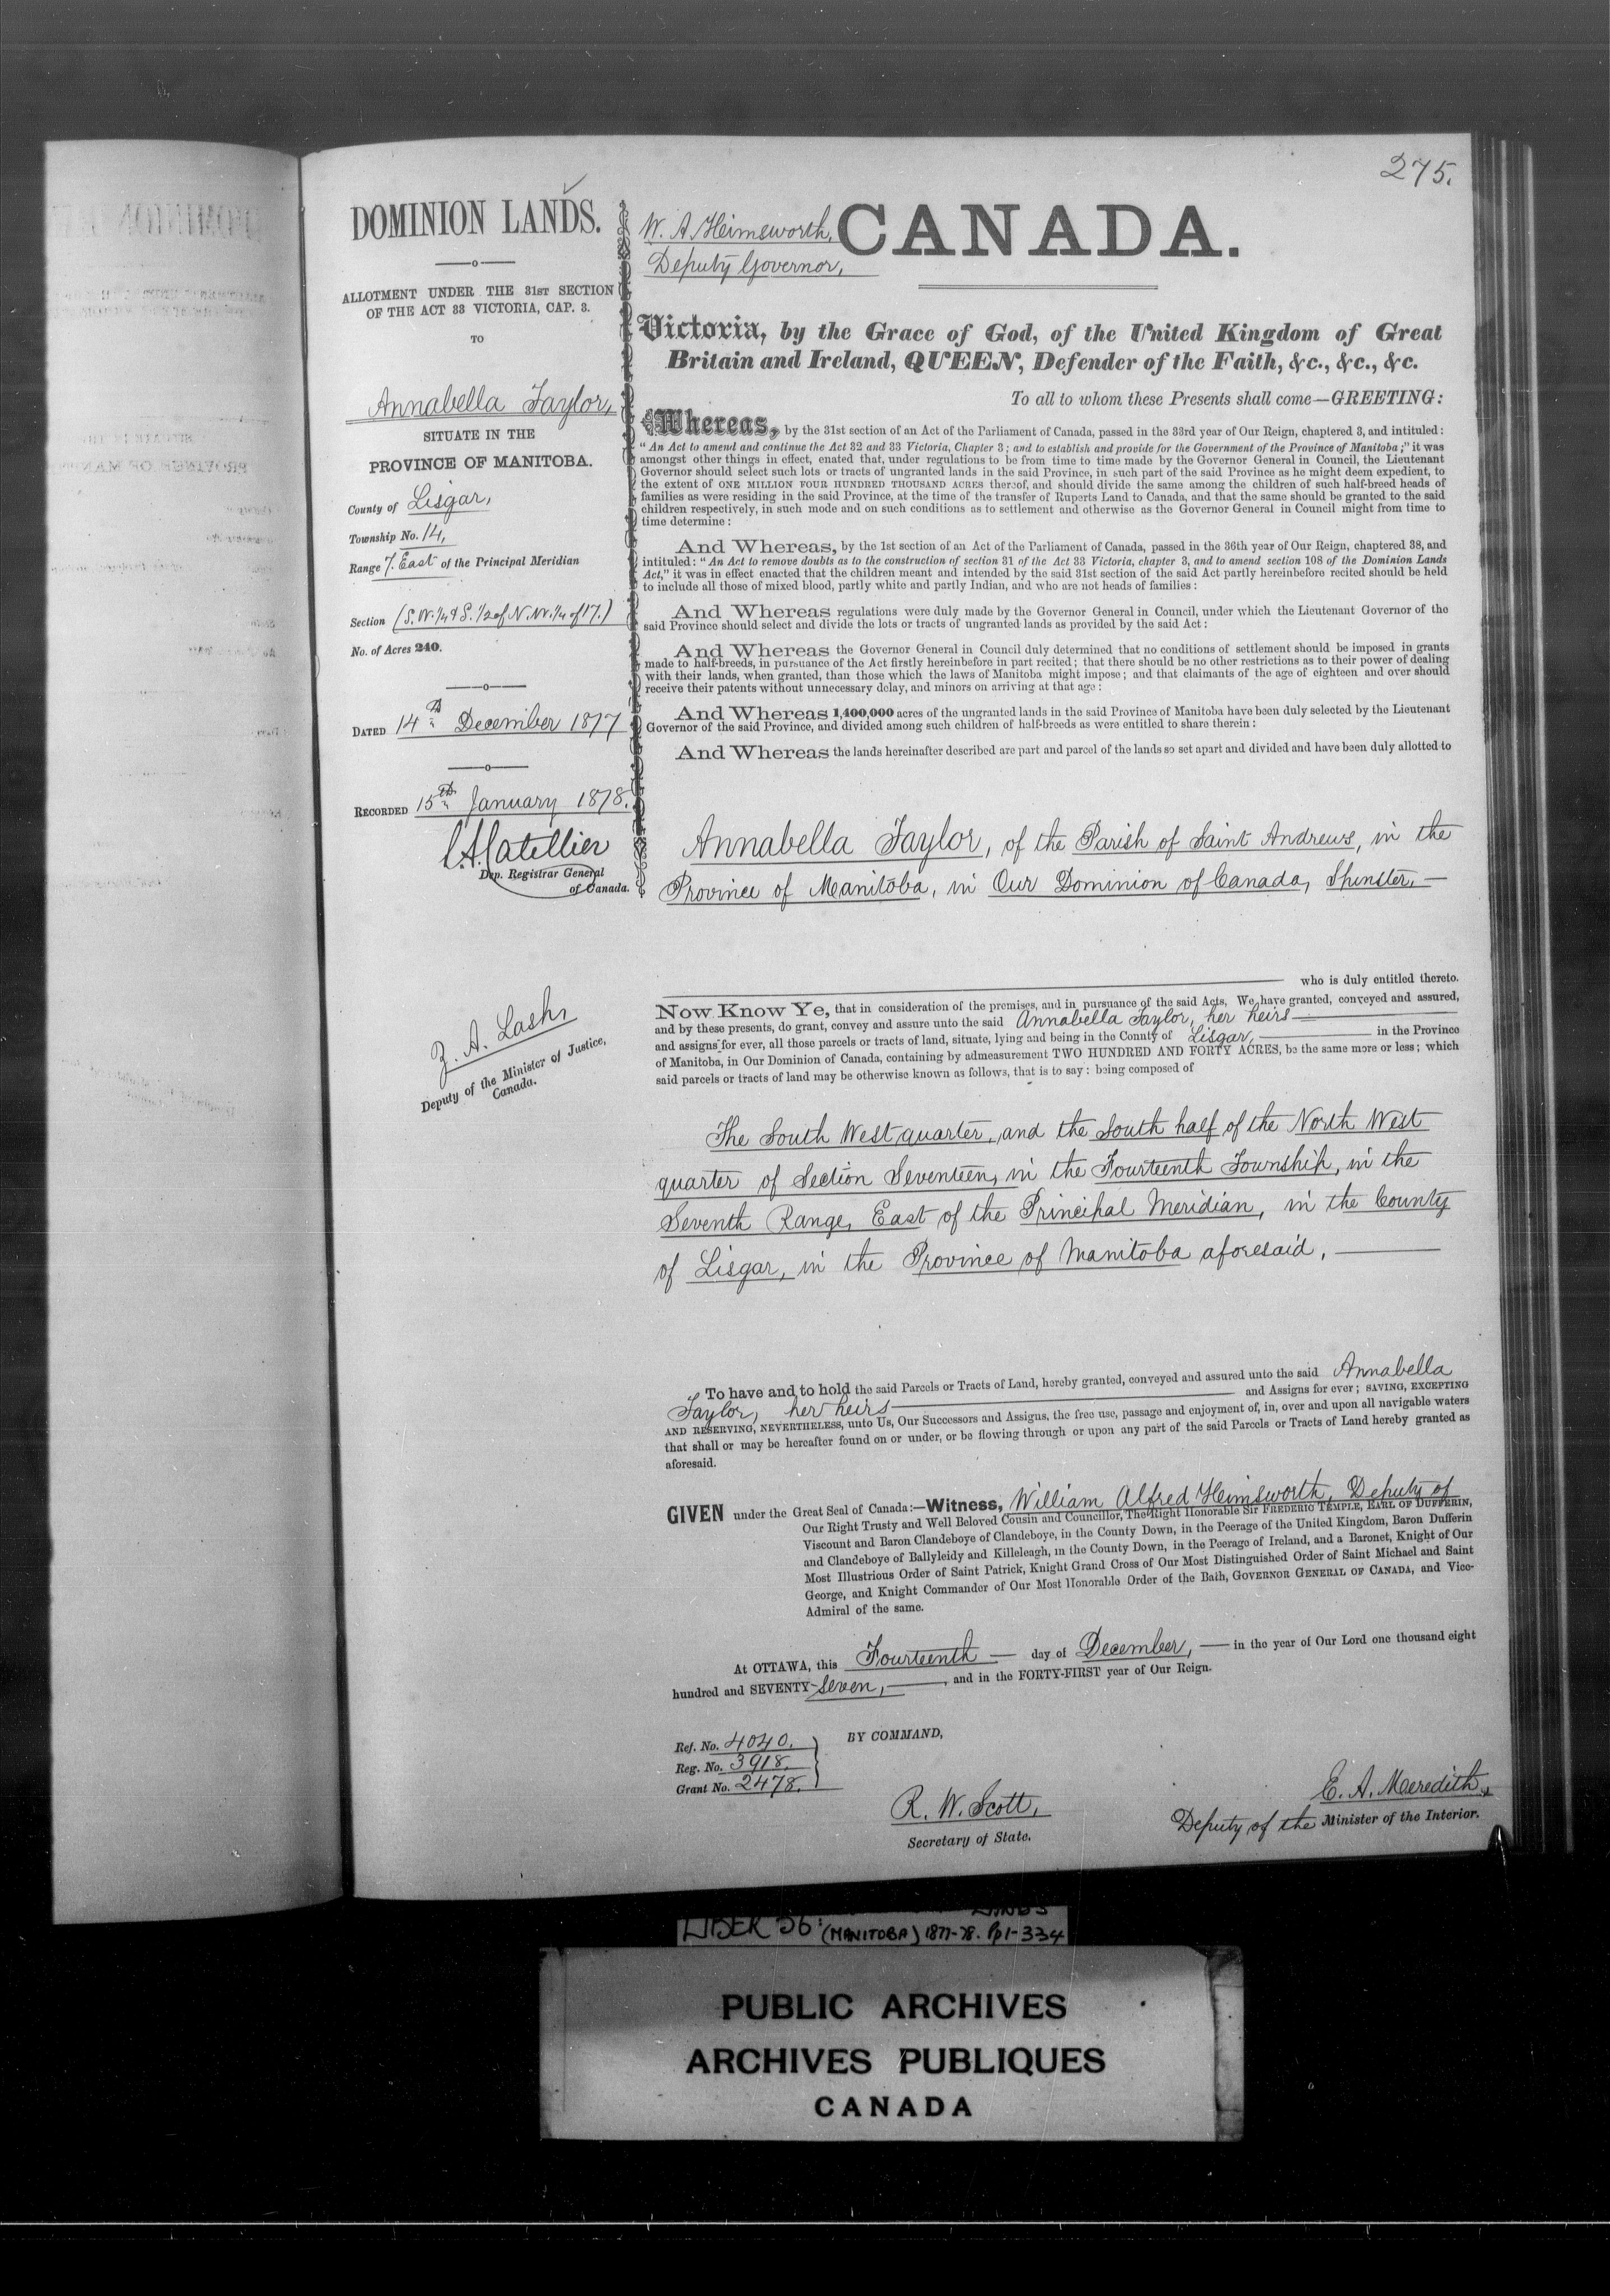 275.
DOMINION LANDS.
ALLOTMENT UNDER THE 31ST SECTION
OF THE ACT 33 VICTORIA, CAP. 3.
TO
Annabella Taylor,
SITUATE IN THE
PROVINCE OF MANITOBA.
County of Lisgar,
Township No. 14,
Range 7. East of the Principal Meridian
Section (S.W. 1/4 & S. 1/2 of N.W. 1/4 of 17.)
No. of Acres 240.
DATED 14th December 1877
RECORDED 15th January 1878.
Dep. Registrar General
of Canada.
Z. A. Lash,
Deputy of the Minister of Justice,
Canada.
W. A. Heimsworth,
Deputy Governor,
CANADA.
Victoria, by the Grace of God, of the United Kingdom of Great
Britain and Ireland, QUEEN, Defender of the Faith, &c., &c., &c.
To all to whom these Presents shall come—GREETING:
Whereas, by the 31st section of an Act of the Parliament of Canada, passed in the 33rd year of Our Reign, chaptered 3, and intituled:
"An Act to amend and continue the Act 32 and 33 Victoria, Chapter 3; and to establish and provide for the Government of the Province of Manitoba;" it was
amongst other things in effect, enated that, under regulations to be from time to time made by the Governor General in Council, the Lieutenant
Governor should select such lots or tracts of ungranted lands in the said Province, in such part of the said Province as he might deem expedient, to
the extent of ONE MILLION FOUR HUNDRED THOUSAND ACRES thereof, and should divide the same among the children of such half-breed heads of
families as were residing in the said Province, at the time of the transfer of Ruperts Land to Canada, and that the same should be granted to the said
children respectively, in such mode and on such conditions as to settlement and otherwise as the Governor General in Council might from time to
time determine:
And Whereas, by the 1st section of an Act of the Parliament of Canada, passed in the 36th year of Our Reign, chaptered 38, and
intituled: "An Act to remove doubts as to the construction of section 31 of the Act 33 Victoria, chapter 3, and to amend section 108 of the Dominion Lands
Act," it was in effect enacted that the children meant and intended by the said 31st section of the said Act partly hereinbefore recited should be held
to include all those of mixed blood, partly white and partly Indian, and who are not heads of families:
And Whereas regulations were duly made by the Governor General in Council, under which the Lieutenant Governor of the
said Province should select and divide the lots or tracts of ungranted lands as provided by the said Act:
And Whereas the Governor General in Council duly determined that no conditions of settlement should be imposed in grants
made to half-breeds, in pursuance of the Act firstly hereinbefore in part recited; that there should be no other restrictions as to their power of dealing
with their lands, when granted, than those which the laws of Manitoba might impose; and that claimants of the age of eighteen and over should
receive their patents without unnecessary delay, and minors on arriving at that age:
And Whereas 1,400,000 acres of the ungranted lands in the said Province of Manitoba have been duly selected by the Lieutenant
Governor of the said Province, and divided among such children of half-breeds as were entitled to share therein:
And Whereas the lands hereinafter described are part and parcel of the lands so set apart and divided and have been duly allotted to
Annabella Taylor, of the Parish of Saint Andrews, in the
Province of Manitoba, in Our Dominion of Canada, Spinster,—
who is duly entitled thereto.
Now Know Ye, that in consideration of the premises, and in pursuance of the said Acts, We have granted, conveyed and assured,
and by these presents, do grant, convey and assure unto the said Annabella Taylor, her heirs
and assigns for ever, all those parcels or tracts of land, situate, lying and being in the County of Lisgar, in the Province
of Manitoba, in Our Dominion of Canada, containing by admeasurement TWO HUNDRED AND FORTY ACRES, be the same more or less; which
said parcels or tracts of land may be otherwise known as follows, that is to say: being composed of
The South West quarter, and the South half of the North West
quarter of Section Seventeen, in the Fourteenth Township, in the
Seventh Range, East of the Principal Meridian, in the County
of Lisgar, in the Province of Manitoba aforesaid,
To have and to hold the said Parcels or Tracts of Land, hereby granted, conveyed and assured unto the said Annabella
Taylor, her heirs and Assigns for ever; SAVING, EXCEPTING
AND RESERVING, NEVERTHELESS, unto Us, Our Successors and Assigns, the free use, passage and enjoyment of, in, over and upon all navigable waters
that shall or may be hereafter found on or under, or be flowing through or upon any part of the said Parcels or Tracts of Land hereby granted as
aforesaid.
GIVEN under the Great Seal of Canada:—Witness, William Alfred Heimsworth, Deputy of
Our Right Trusty and Well Beloved Cousin and Councillor, The Right Honorable Sir FREDERIC TEMPLE, EARL OF DUFFERIN,
Viscount and Baron Clandeboye of Clandeboye, in the County Down, in the Peerage of the United Kingdom, Baron Dufferin
and Clandeboye of Ballyleidy and Killeleagh, in the County Down, in the Peerage of Ireland, and a Baronet, Knight of Our
Most Illustrious Order of Saint Patrick, Knight Grand Cross of Our Most Distinguished Order of Saint Michael and Saint
George, and Knight Commander of Our Most Honorable Order of the Bath, GOVERNOR GENERAL OF CANADA, and Vice-
Admiral of the same.
At OTTAWA, this Fourteenth — day of December, — in the year of Our Lord one thousand eight
hundred and SEVENTY-Seven, —, and in the FORTY-FIRST year of Our Reign.
Ref. No. 4040.
Reg. No. 3918.
Grant No. 2478.
BY COMMAND,
R. W. Scott,
Secretary of State.
E. A. Meredith,
Deputy of the Minister of the Interior.
LANDS
LIBER 56: (MANITOBA) 1877-78. Pp 1-334
PUBLIC ARCHIVES
ARCHIVES PUBLIQUES
CANADA